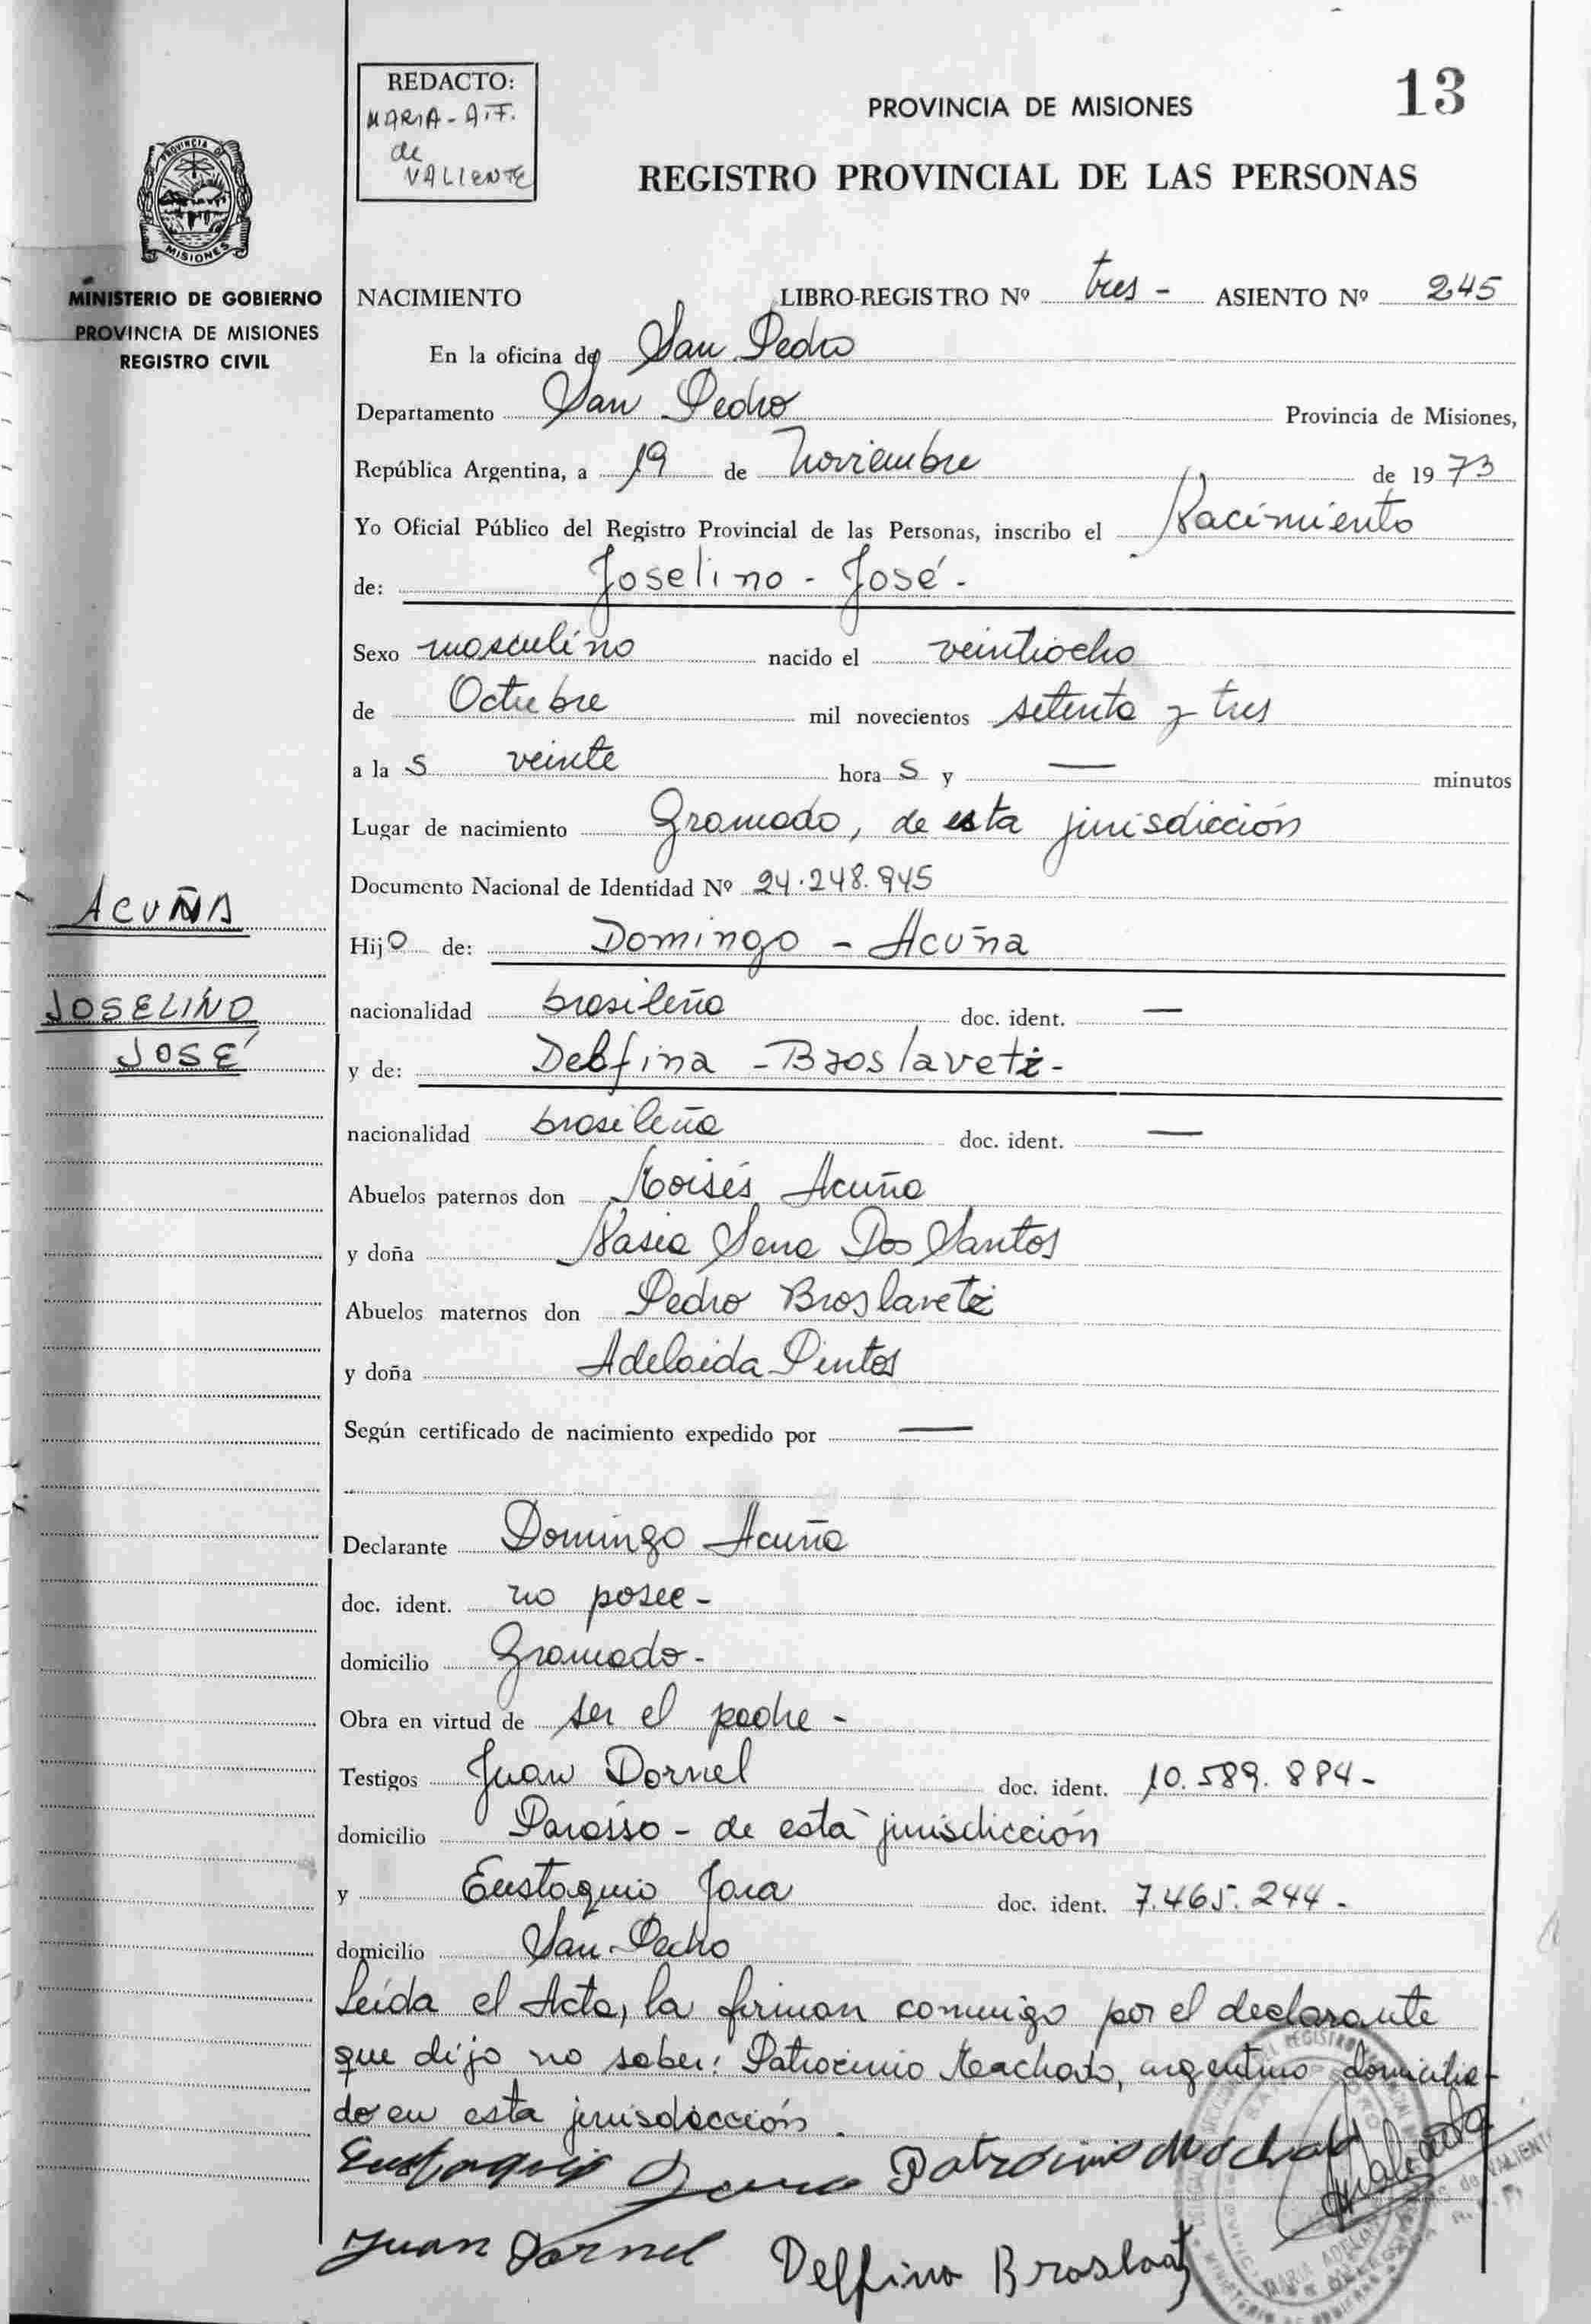 REDACTO:
MARIA-A.T.F.
de
VALIENTE
13
PROVINCIA DE MISIONES
REGISTRO PROVINCIAL DE LAS PERSONAS
PROVINCIA DE
MISIONES
MINISTERIO DE GOBIERNO
PROVINCIA DE MISIONES
REGISTRO CIVIL
NACIMIENTO LIBRO-REGISTRO Nº tres - ASIENTO Nº 245
En la oficina de San Pedro
Departamento San Pedro Provincia de Misiones,
República Argentina, a 19 de Noviembre de 1973
Yo Oficial Público del Registro Provincial de las Personas, inscribo el Nacimiento
de: Joselino - José -
Sexo masculino nacido el veintiocho
de Octubre mil novecientos setenta y tres
a la s veinte hora s y — minutos
Lugar de nacimiento Gramado, de esta jurisdicción
Documento Nacional de Identidad Nº 24.248.945
ACUÑA
Hijo de: Domingo - Acuña
JOSELINO
nacionalidad brasileña doc. ident. —
JOSÉ
y de: Delfina - Broslavetz -
nacionalidad brasileña doc. ident. —
Abuelos paternos don Moisés Acuña
y doña Sena Dos Santos
Abuelos maternos don Pedro Broslavetz
y doña Adelaida Pintos
Según certificado de nacimiento expedido por —
Declarante Domingo Acuña
doc. ident. no posee -
domicilio Gramado -
Obra en virtud de ser el padre -
Testigos Juan Dornel doc. ident. 10.589.884 -
domicilio Paraíso - de esta jurisdicción
y Eustaquio Jara doc. ident. 7.465.244 -
domicilio San Pedro
Leída el Acta, la firman conmigo por el declarante
que dijo no saber: Patrocinio Machado, argentino domicilia-
do en esta jurisdicción.
Eustaquio Jara Patrocinio Machado
Juan Dornel Delfina